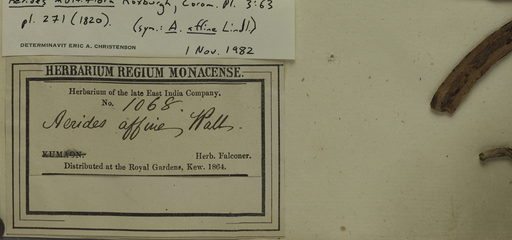 Aerides multiflora Roxburgh, Corom. pl. 3:63
pl. 271 (1820). (syn.: A. affine Lindl.)
DETERMINAVIT ERIC A. CHRISTENSON
1 Nov. 1982
HERBARIUM REGIUM MONACENSE.
Herbarium of the late East India Company,
No. 1068.
Aerides affine, Wall.
KUMAON. Herb. Falconer.
Distributed at the Royal Gardens, Kew. 1864.